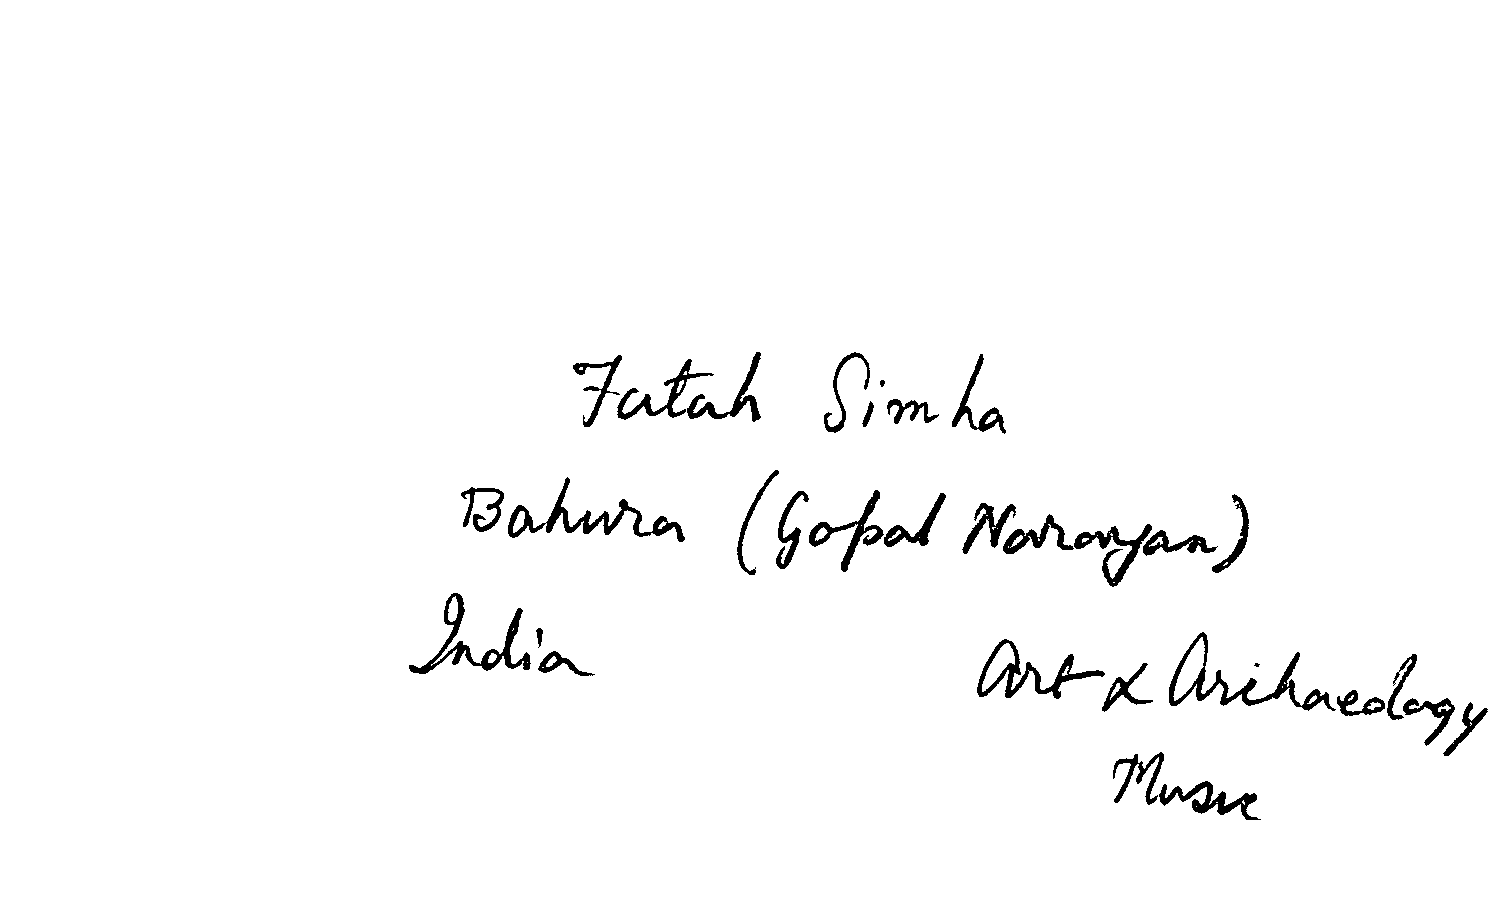 Fatah Simha
Bahura (Gopal Narayan)
India
Art & Archaeology
Music